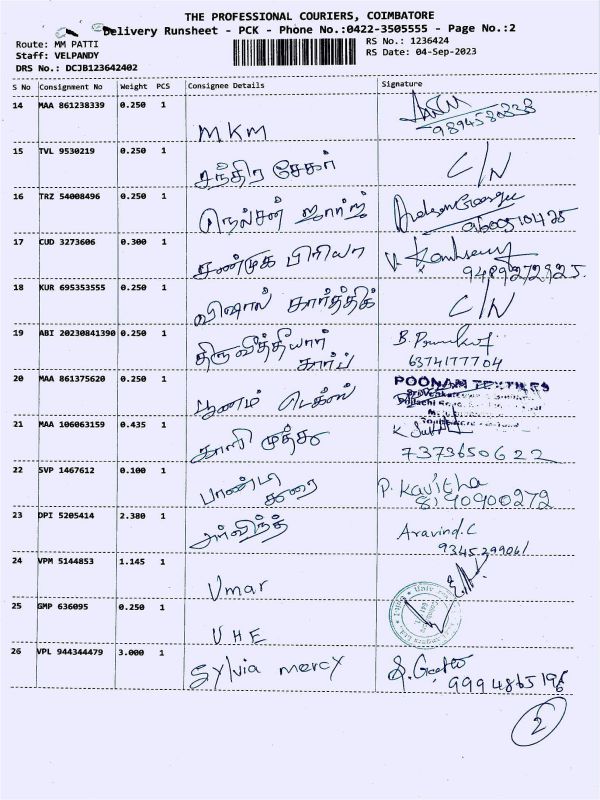 THE PROFESSIONAL COURIERS, COIMBATORE
Delivery Runsheet - PCK - Phone No.:0422-3505555 - Page No.:2
Route: MM PATTI
Staff: VELPANDY
DRS No.: DCJB123642402
RS No.: 1236424
RS Date: 04-Sep-2023
S No Consignment No Weight PCS Consignee Details Signature
14 MAA 861238339 0.250 1 MKM
9894580838
15 TVL 9530219 0.250 1 சந்திர சேகர் C/N
16 TRZ 54008496 0.250 1 நெல்சன் ஜார்ஜ்
9600510425
17 CUD 3273606 0.300 1 சண்முக பிரியா
9489272925.
18 KUR 695353555 0.250 1 விஷால் கார்த்திக் C/N
19 ABI 20230841390 0.250 1 திரு வித்தியார்
கார்ப்
6374177704
20 MAA 861375620 0.250 1 பூனம் டெக்ஸ் POONAM TEXTILES
21 MAA 106063159 0.435 1 காளி முத்து
7373650622
22 SVP 1467612 0.100 1 பாண்டி துரை P. Kavitha
8190900272
23 DPI 5205414 2.380 1 அர்விந்த் Aravind.C
9345299061
24 VPM 5144853 1.145 1 Umar
25 GMP 636095 0.250 1 UHE
26 VPL 944344479 3.000 1 Sylvia mercy S. Geetha
9994865196
2